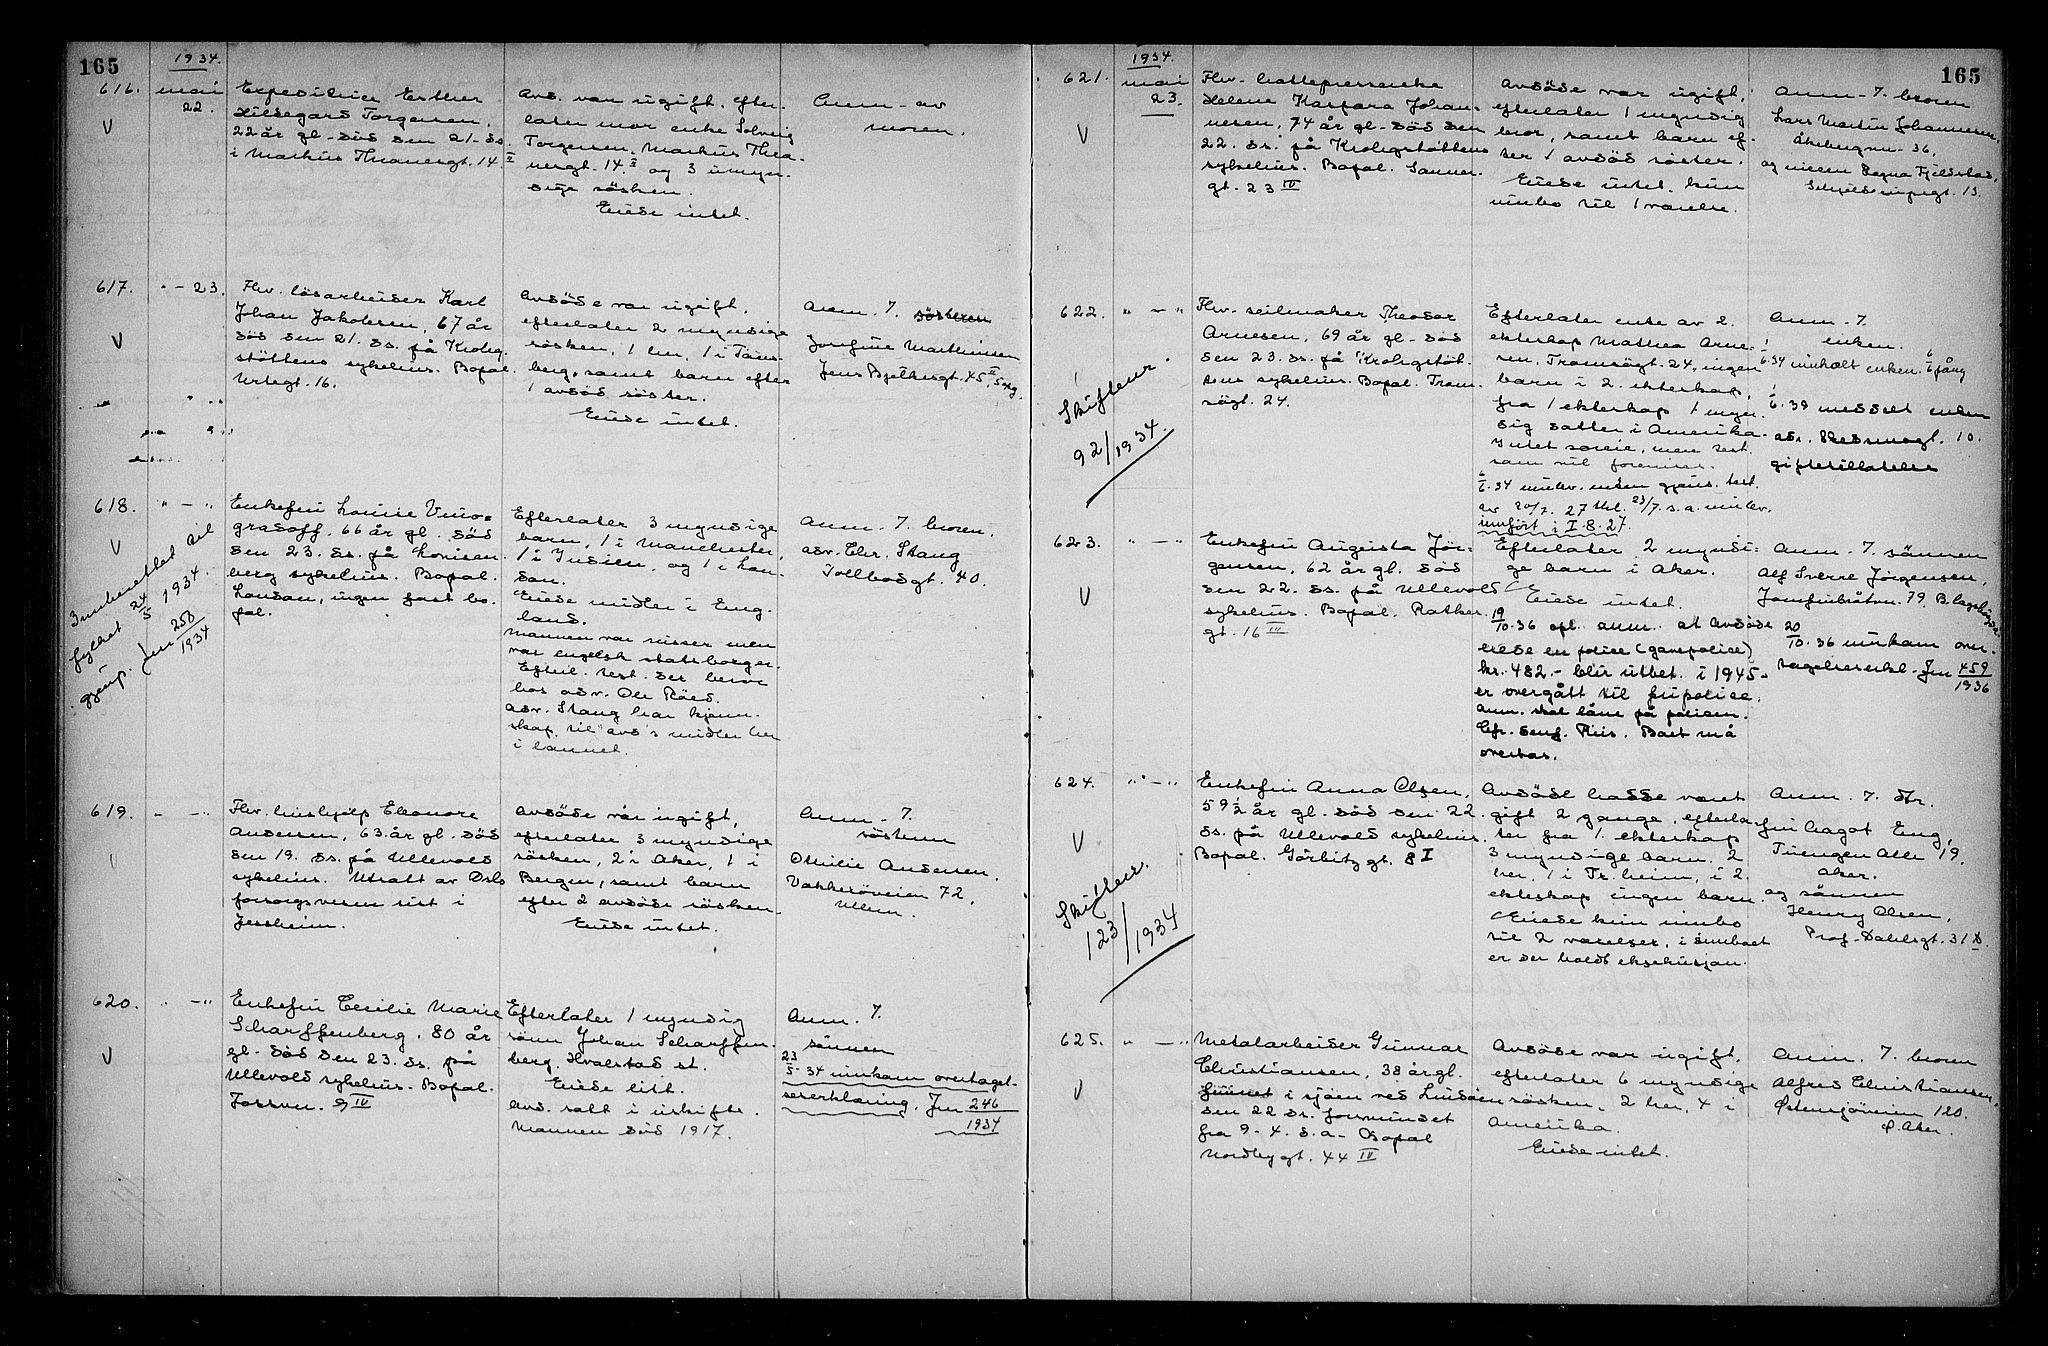 165
1934.
616.
mai
22.
V
Expeditrice Esther
Hildegard Torgersen,
22 år gl. död den 21. ds.
i Markus Thranesgt. 14 II
Avd. var ugift, efter-
later mor enke Solveig
Torgersen, Markus Thra-
nesgt. 14 II og 3 umyn-
dige sösken.
Eiede intet.
Anm. av
moren.
617.
" - 23.
V
Fhv. lösarbeider Karl
Johan Jakobsen, 67 år
död den 21. ds. på Krohg-
stöttens sykehus. Bopæl.
Urtegt. 16.
Avdöde var ugift,
efterlater 2 myndige
sösken, 1 her, 1 i Töns-
berg, samt barn efter
1 avdöd söster.
Eiede intet.
Anm. 7. sösteren
Josefine Martinsen
Jens Bjelkesgt. 45 II, opg.
618.
" - "
V
Innberettet til
fylket 24/5 1934.
gjenp. Jnr 258
1934
Enkefru Louise Vino-
gradoff, 66 år gl. död
den 23. ds. på Lovisen-
berg sykehus. Bopæl.
London, ingen fast bo-
pæl.
Efterlater 3 myndige
barn, 1 i Manchester,
1 i Indien, og 1 i Lon-
don.
Eiede midler i Eng-
land.
Mannen var russer men
var engelsk statsborger.
Eftl. test. det beror
hos adv. Ole Röed.
Adv. Stang har kjenn-
skap til avd's midler her
i landet.
Anm. 7. broren,
adv. Chr. Stang
Tollbodgt. 40.
619.
" - "
Fhv. hushjelp Eleonore
Andersen, 63 år gl. död
den 19. ds. på Ullevold
sykehus. Utsatt av Oslo
forsorgsvesen ut i
Jessheim.
Avdöde var ugift,
efterlater 3 myndige
sösken, 2 i Aker, 1 i
Bergen, samt barn
efter 2 avdöde sösken.
Eiede intet.
Anm. 7.
söstrene
Othilie Andersen.
Vækkeröveien 72,
Ullern.
620.
" - "
V
Enkefru Cecilie Marie
Scharffenberg, 80 år
gl. död den 23. ds. på
Ullevold sykehus. Bopæl.
Fossvn. 9 IV
Efterlater 1 myndig
sönn Johan Scharffen-
berg. Hvalstad st.
Eiede litt.
Avd. satt i uskifte.
Mannen död 1917.
Anm. 7.
sönnen
23/5-34 innkom overtagel-
seserklæring, Jnr 246
1934
165
1934.
621.
mai
23.
V
Fhv. hattepresserske
Helene Kaspara Johan-
nesen, 74 år gl. död den
22. ds. på Krohgstöttens
sykehus. Bopæl. Sanner-
gt. 23 IV
Avdöde var ugift,
efterlater 1 myndig
bror, samt barn ef-
ter 1 avdöd söster.
Eiede intet. kun
innbo til 1 værelse.
Anm. 7. broren
Lars Martin Johannesen,
Åkebergvn. 36,
og niesen Ragna Fjeldstad,
13.
622.
" - "
Skifteur.
92/1934.
Fhv. seilmaker Theodor
Arnesen, 69 år gl. död
den 23. ds. på Krohgstöt-
tens sykehus. Bopæl. Trom-
sögt. 24.
Efterlater enke av 2.
ekteskap Mathea Arne-
sen, Tromsögt. 24, ingen
barn i 2. ekteskap,
fra 1 ekteskap 1 myn-
dig datter i Amerika.
Intet særeie, men test.
som vil foreniser.
1/6.34 innlev. enken gjens. test.
av 20/7. 27 tkl. 23/7. s.a. innlev.
innfört i I.8.27.
Anm. 7.
enken.
1/6.34 innkalt enken. 6/6 gång
1/6.38 meddelt enken
giftetillatelse
623.
" - "
V
Enkefru Augusta Jör-
gensen, 62 år gl. död
den 22. ds. på Ullevold
sykehus. Bopæl. Rathke-
gt. 16 III
Efterlater 2 myndi-
ge barn i Aker.
Eiede intet.
19/10.36 opl. anm. at avdöde
eiede en police (gavepolice)
kr. 482.- blir utbet. i 1945-
er overgått til fripolice.
Anm. skal låne på policen.
Cfr. senf. Riis. Boet må
overtas.
Anm. 7. sönnen
Alf Sverre Jörgensen,
Jomfrubråtvn. 79, Bekkelagshögda
20/10.36 innkom over-
tagelseserkl. Jnr 459
1936
624.
" - "
V
Skifteur.
123/1934
Enkefru Anna Olsen,
59 1/2 år gl. död den 22.
ds. på Ullevold sykehus.
Bopæl. Görbitzgt. 8 I
Avdöde hadde været
gift 2 gange, efterla-
ter fra 1. ekteskap
3 myndige barn, 2
her, 1 i Tr.heim, i 2.
ekteskap ingen barn.
Eiede kun innbo
til 2 værelser, i innboet
er der holdt eksekusjon.
Anm. 7. dtr.
fru Dagot Eng,
Tuengen Alle 19,
Aker.
og sönnen
Henry Olsen,
Prof. Dahlsgt. 31 b.
625.
" - "
V
Metalarbeider Gunnar
Christiansen, 38 år gl.
funnet i sjöen ved Lindöen
den 22 ds. forsvundet
fra 9-4. d.a. Bopæl
Nordbygt. 44 IV
Avdöde var ugift,
efterlater 6 myndige
sösken, 2 her, 4 i
Amerika.
Eiede intet.
Anm. 7. broren
Alfred Christiansen,
Östensjöveien 120.
Ö. Aker.